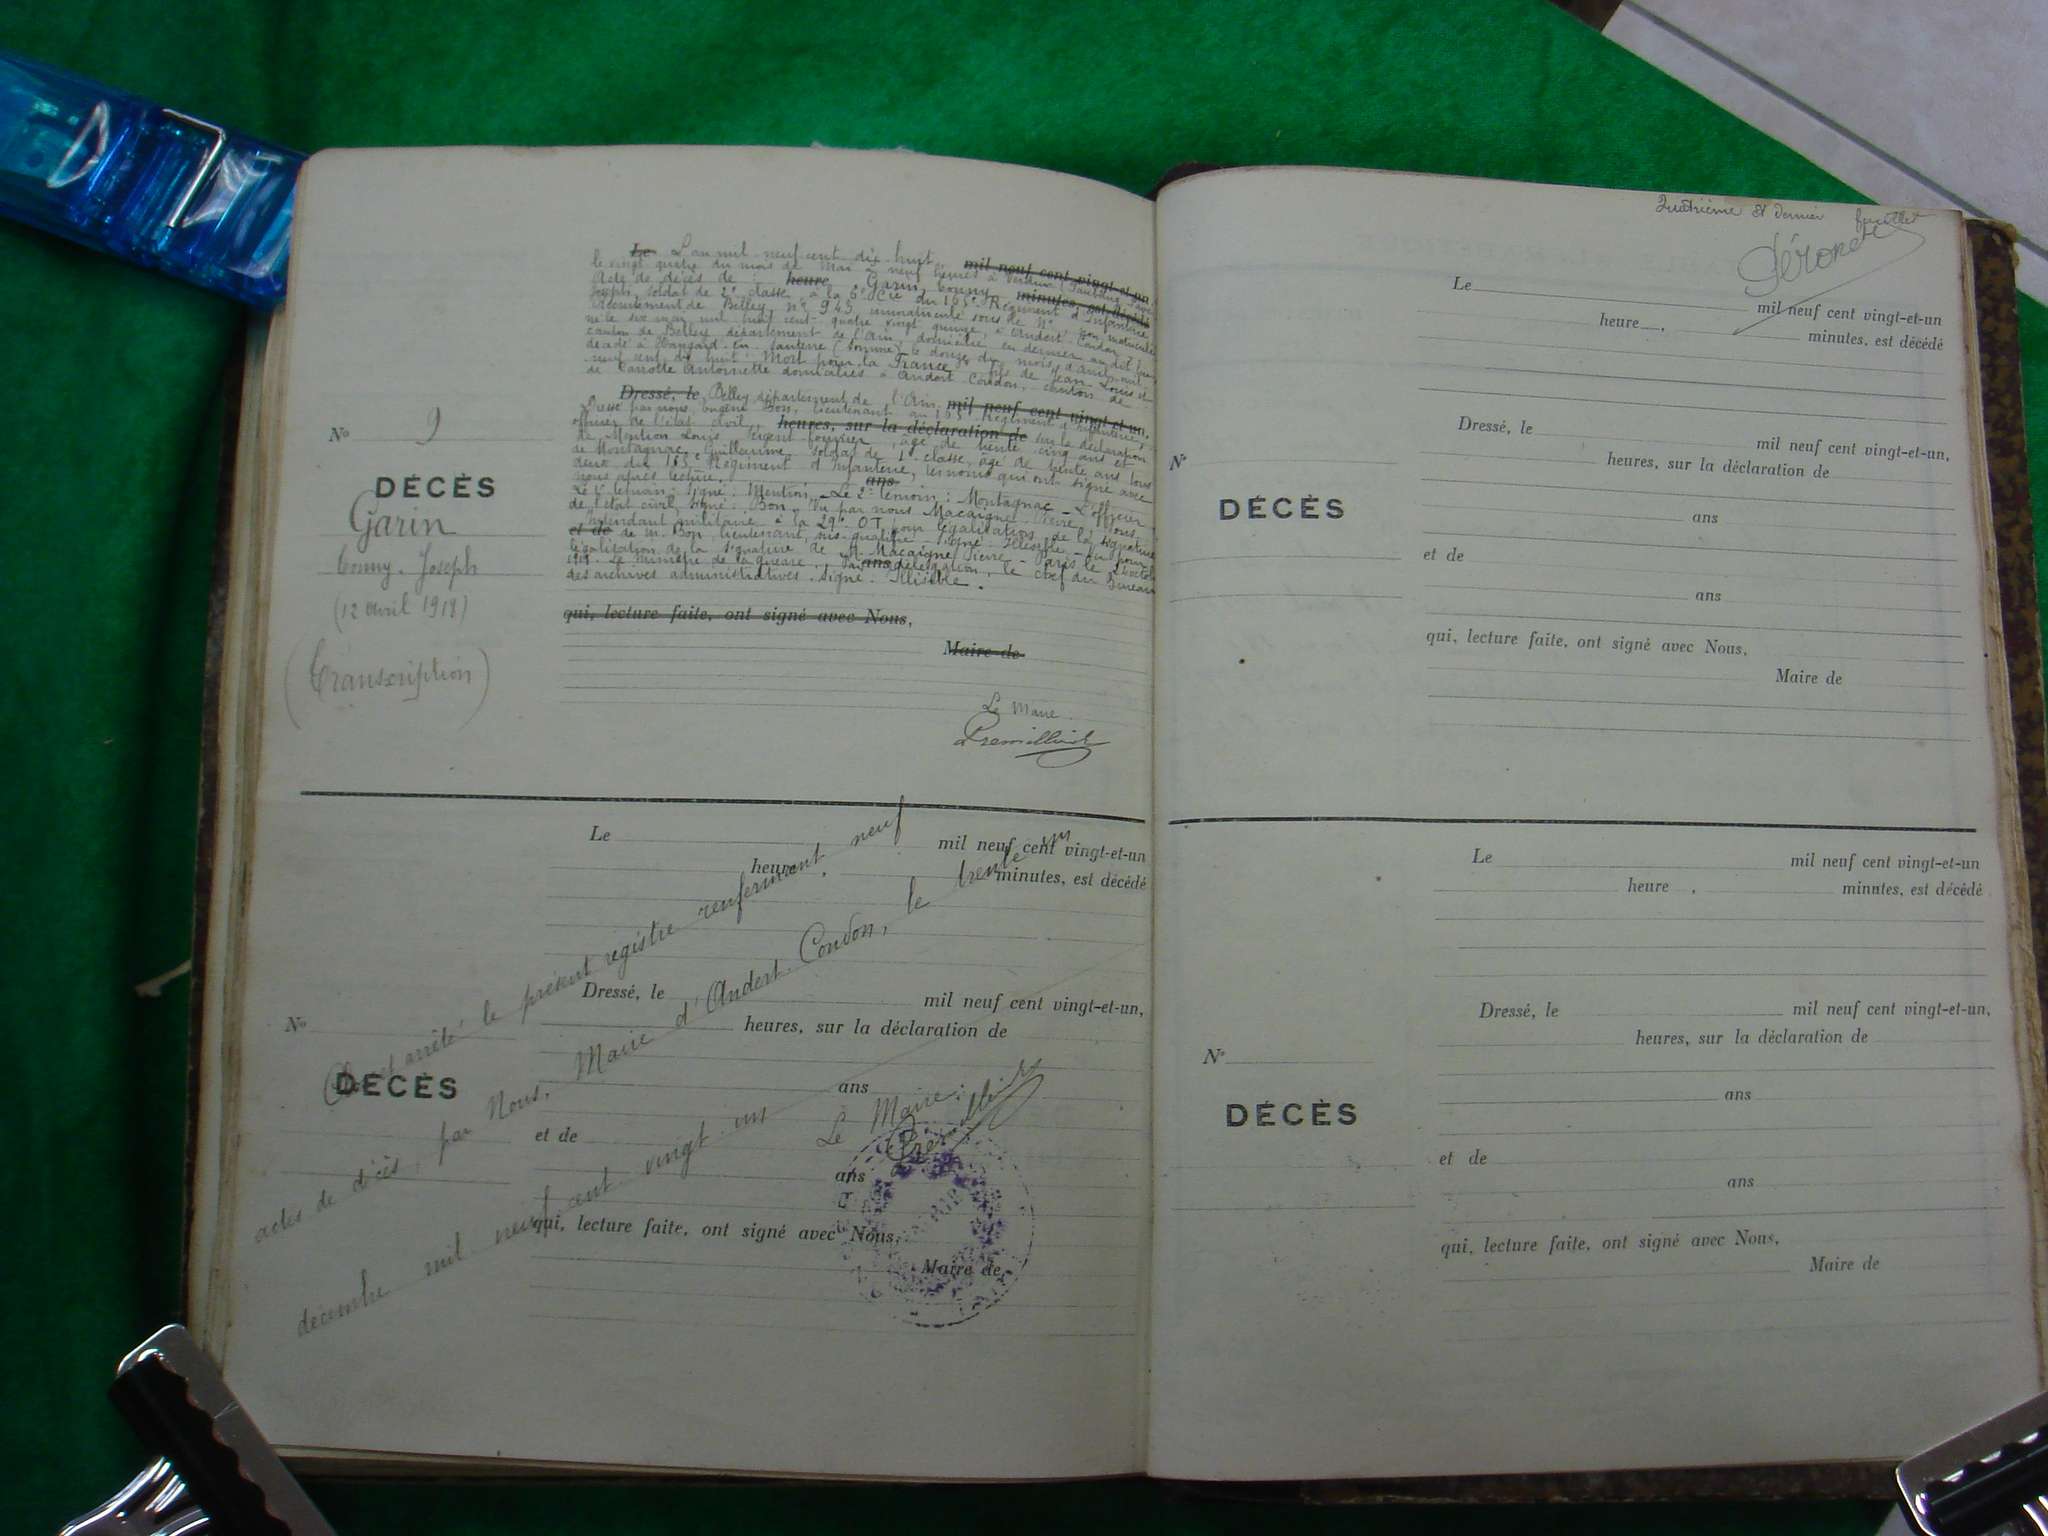 Le L'an mil neuf cent dix huit mil neuf cent vingt-et-un
le vingt quatre du mois de Mai à neuf heures à Verdun
Acte de décès de : heure Garin Conny minutes, est décédé
Joseph, soldat de 2e classe à la 6e Cie du 165e Régiment d'Infanterie
recrutement de Belley no 943 immatriculé sous le No
né le six mai mil huit cent quatre vingt quinze, à Andert-Condon
canton de Belley, département de l'Ain, domicilié en dernier au dit lieu
décédé à Hangard-en-Santerre (Somme) le douze du mois d'avril mil
neuf cent dix huit. Mort pour la France, fils de Jean Louis et
de Antoinette domiciliés à Andert-Condon, canton de
Dressé, le Belley département de l'Ain. mil neuf cent vingt-et-un,
Dressé par nous, Eugène Bon, lieutenant au 165e Régiment d'infanterie,
officier de l'état civil, heures, sur la déclaration de sur la déclaration
de Mention Louis, sergent fourrier, âgé de trente cinq ans et
de Montagnac Guillaume, soldat de 1e classe, âgé de trente ans tous
deux du 165e Régiment d'Infanterie, témoins qui ont signé avec
nous après lecture. ans
Le 1er témoin : signé : Mention - Le 2e témoin : Montagnac - L'officier
de l'état civil, signé : Bon - Vu par nous Macaigne Pierre, sous
intendant militaire à la 29e DI pour légalisation de la signature
et de de M. Bon lieutenant, sus-qualifié - signé : Illisible - Vu pour
légalisation de la signature de M. Macaigne Pierre - Paris le octobre
1918. Le ministre de la guerre. Par ans délégation, le chef du Bureau
des archives administratives. Signé : Illisible.
qui, lecture faite, ont signé avec Nous,
Maire de
Le Maire
No 9
DÉCÈS
Garin
Conny-Joseph
(12 avril 1918)
(Transcription)
Le mil neuf cent vingt-et-un
heure , minutes, est décédé
Dressé, le mil neuf cent vingt-et-un,
heures, sur la déclaration de
No
DÉCÈS
ans
et de
ans
qui, lecture faite, ont signé avec Nous,
Maire de
Clos et arrêté le présent registre renfermant neuf
actes de décès, par Nous, Maire d'Andert-Condon, le trente un
décembre mil neuf cent vingt un
Le Maire :
Quatrième et dernier feuillet
Le mil neuf cent vingt-et-un
heure , minutes, est décédé
Dressé, le mil neuf cent vingt-et-un,
heures, sur la déclaration de
No
DÉCÈS
ans
et de
ans
qui, lecture faite, ont signé avec Nous,
Maire de
Le mil neuf cent vingt-et-un
heure , minutes, est décédé
Dressé, le mil neuf cent vingt-et-un,
heures, sur la déclaration de
No
DÉCÈS
ans
et de
ans
qui, lecture faite, ont signé avec Nous,
Maire de